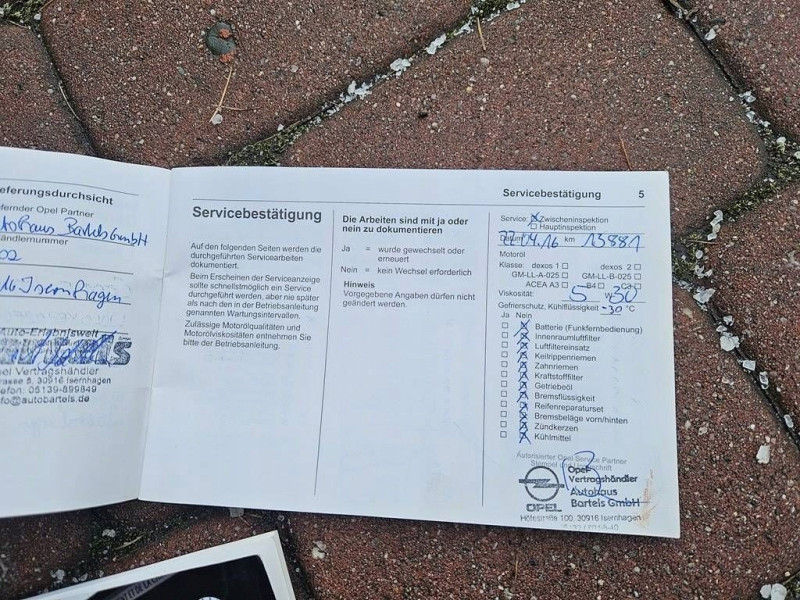 eferungsdurchsicht
fernder Opel Partner
Bartels GmbH
ändlernummer
02
Isernhagen
Auto-Erlebniswelt
el Vertragshändler
rasse 8, 30916 Isernhagen
efon. 05139-899849
fo@autobartels.de
Servicebestätigung
Auf den folgenden Seiten werden die
durchgeführten Servicearbeiten
dokumentiert.
Beim Erscheinen der Serviceanzeige
sollte schnellstmöglich ein Service
durchgeführt werden, aber nie später
als nach den in der Betriebsanleitung
genannten Wartungsintervallen.
Zulässige Motorölqualitäten und
Motorölviskositäten entnehmen Sie
bitte der Betriebsanleitung.
Die Arbeiten sind mit ja oder
nein zu dokumentieren
Ja = wurde gewechselt oder
erneuert
Nein = kein Wechsel erforderlich
Hinweis
Vorgegebene Angaben dürfen nicht
geändert werden.
Servicebestätigung 5
Service: Zwischeninspektion
Hauptinspektion
Datum 16 km 15881
Motoröl
Klasse: dexos 1 dexos 2
GM-LL-A-025 GM-LL-B-025
ACEA A3 B4 C3
Viskosität: 5 W 30
Gefrierschutz, Kühlflüssigkeit -30 °C
Ja Nein
Batterie (Funkfernbedienung)
Innenraumluftfilter
Luftfiltereinsatz
Keilrippenriemen
Zahnriemen
Kraftstofffilter
Getriebeöl
Bremsflüssigkeit
Reifenreparaturset
Bremsbeläge vorn/hinten
Zündkerzen
Kühlmittel
Autorisierter Opel Service Partner
Stempel und Unterschrift
Opel-
Vertragshändler
Autohaus
Bartels GmbH
OPEL
30916 Isernhagen